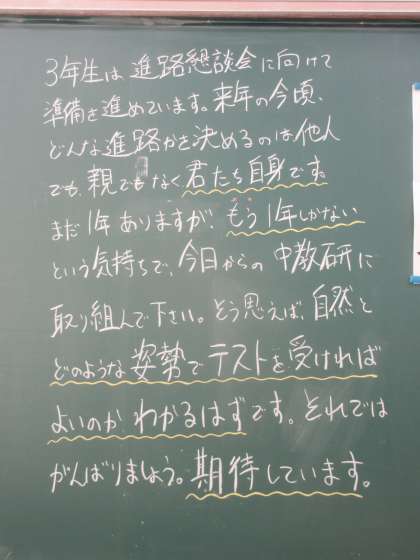 3年生は進路懇談会に向けて
準備を進めています。来年の今頃、
どんな進路かを決めるのは他人
でも、親でもなく君たち自身です。
まだ1年ありますが、もう1年しかない
という気持ちで、今日からの中教研に
取り組んで下さい。そう思えば、自然と
どのような姿勢でテストを受ければ
よいのかわかるはずです。それでは
がんばりましょう。期待しています。